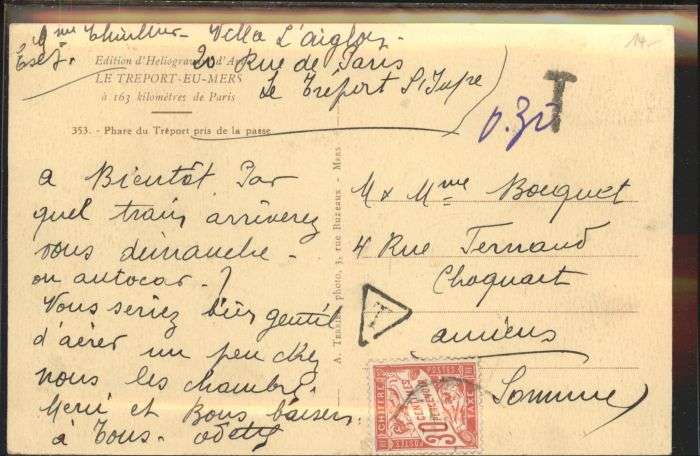 Mme Thuillier - Villa L'aiglon
Exp.
20 Rue de Paris
Le Tréport S/Infre
Edition d'Héliogravure d'Art
LE TREPORT-EU-MERS
à 163 kilomètres de Paris
353. - Phare du Tréport pris de la passe
14-
T
0.30
a Bientôt. Par
quel train arriverez
vous dimanche -
ou autocar - ?
Vous seriez bien gentil
d'aérer un peu chez
nous les chambres.
Merci et Bons baisers
à Tous - Odette
A. photo, 3, rue Buzeaux - MERS
M & Mme Bocquet
4 Rue Fernand
Choquart
amiens
Somme
T
30
CHIFFRE TAXE
POSTES